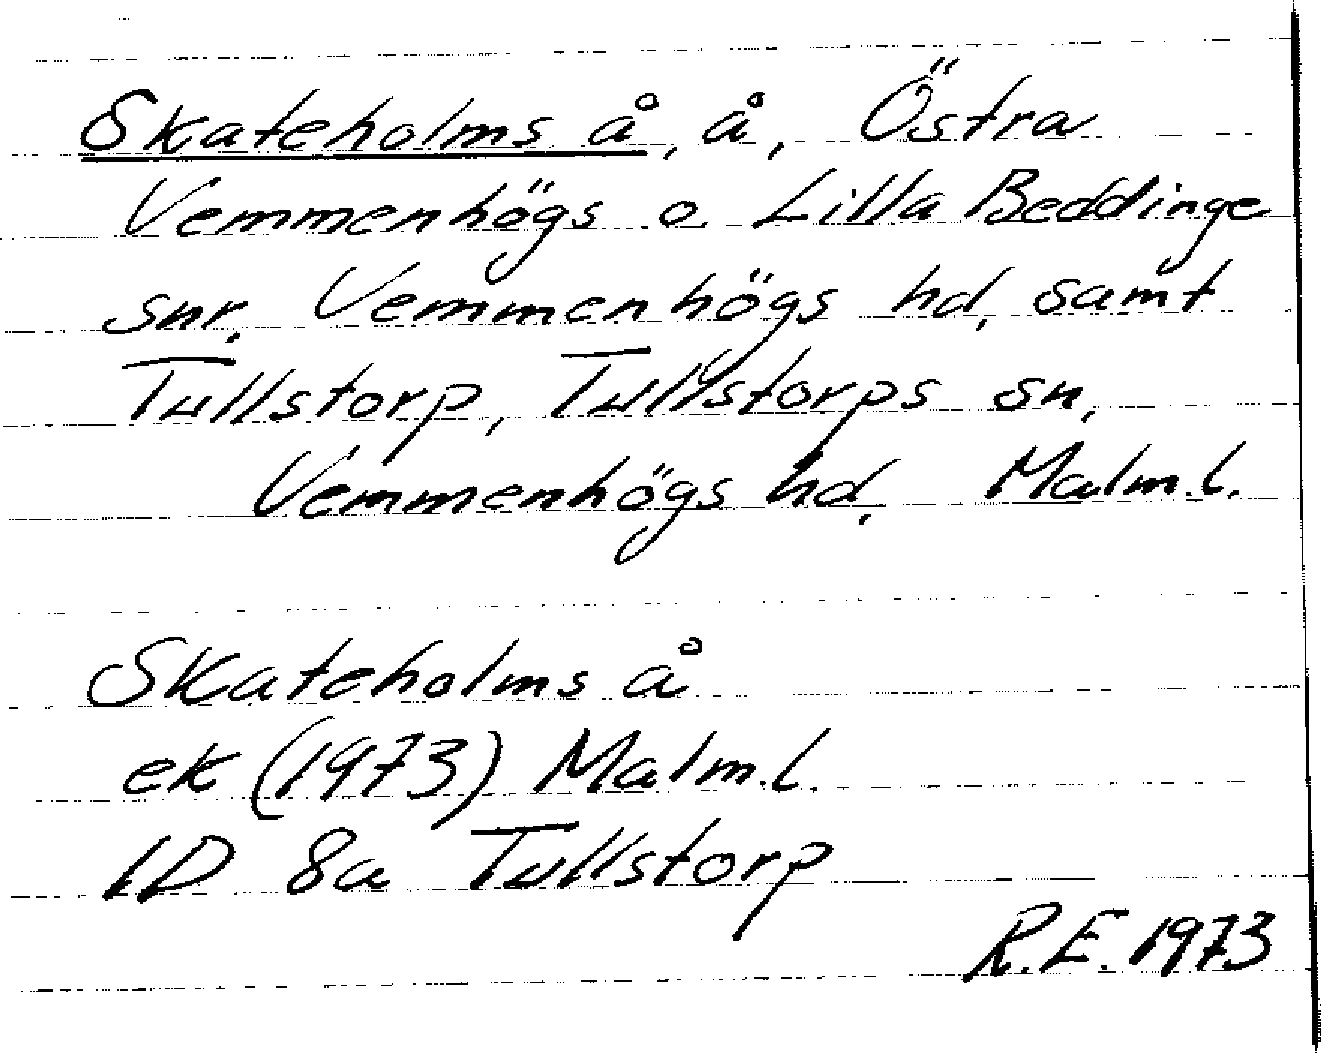 Skateholms å, å, Östra
Vemmenhögs o. Lilla Beddinge
snr, Vemmenhögs hd, samt
Tullstorp, Tullstorps sn,
Vemmenhögs hd, Malm.l.
Skateholms å
ek (1973) Malm.l.
1D 8a Tullstorp
R.E. 1973